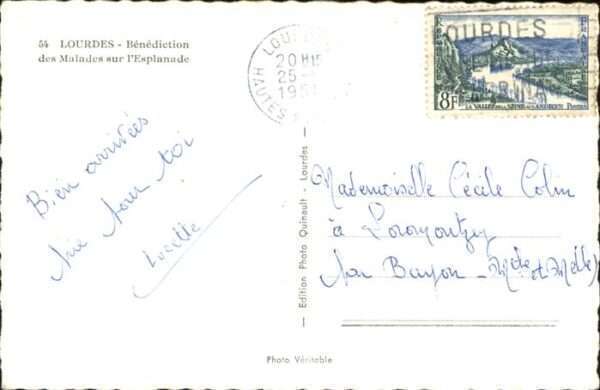 54 LOURDES - Bénédiction
des Malades sur l'Esplanade
LOURDES
HAUTES
20 H15
25
8F
LA VALLÉE DE LA SEINE AUX ANDELYS
LOURDES
Bien arrivées
Prie pour toi
Lucette
Mademoiselle Cécile Colin
à Loromontzey
par Bayon - Mthe et Melle)
Edition Photo Quinault - Lourdes
Photo Véritable